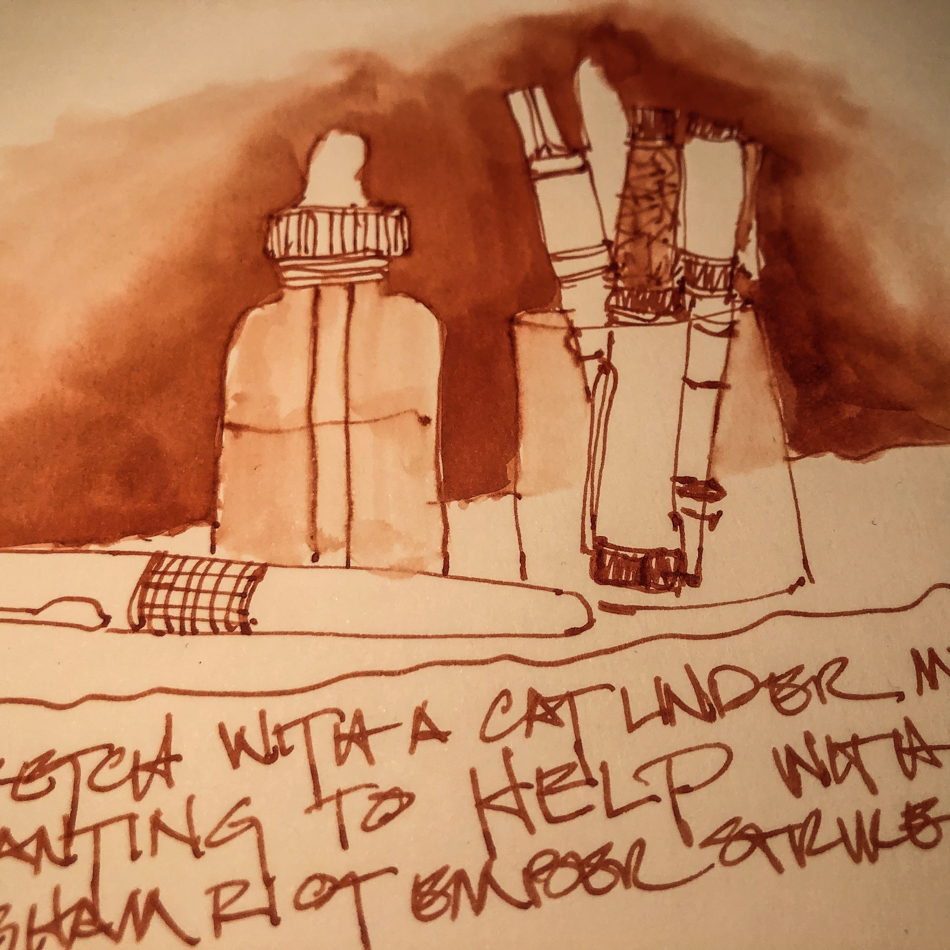 ETCH WITH A CAT UNDER M
ANTING TO HELP WITH
SHAM RIOT EMBER STRUKE